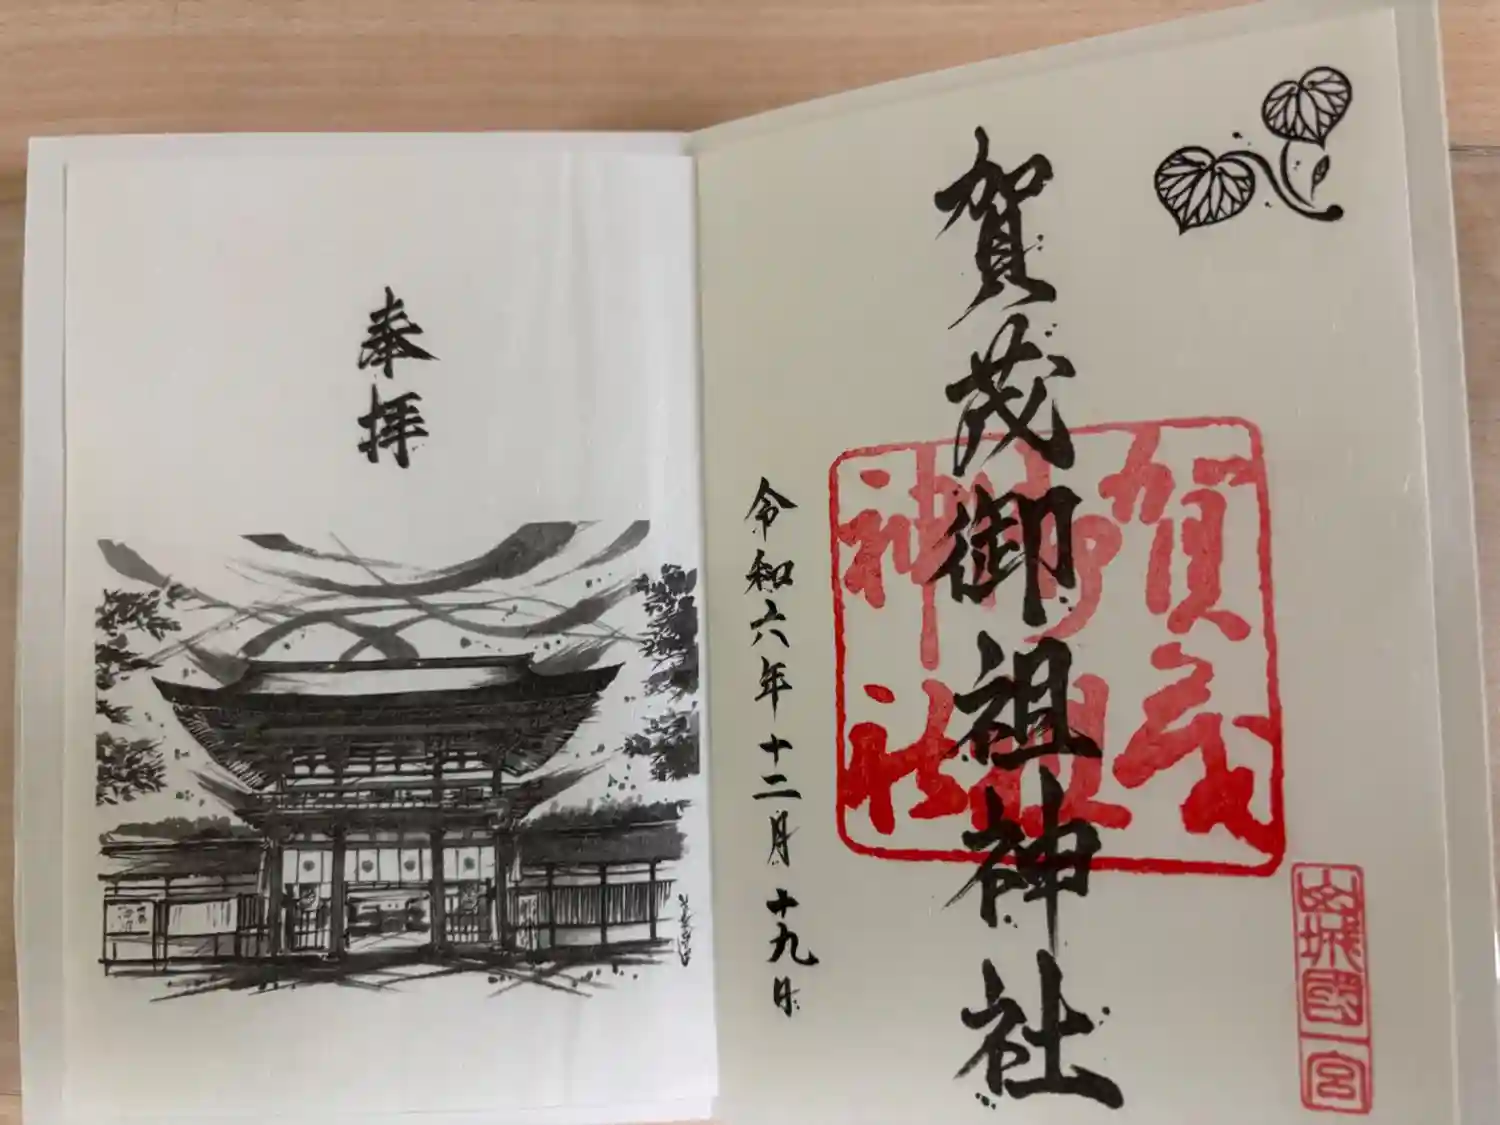 賀茂御祖神社
賀茂
御祖
神社
山城國一宮
令和六年十二月十九日
奉拝